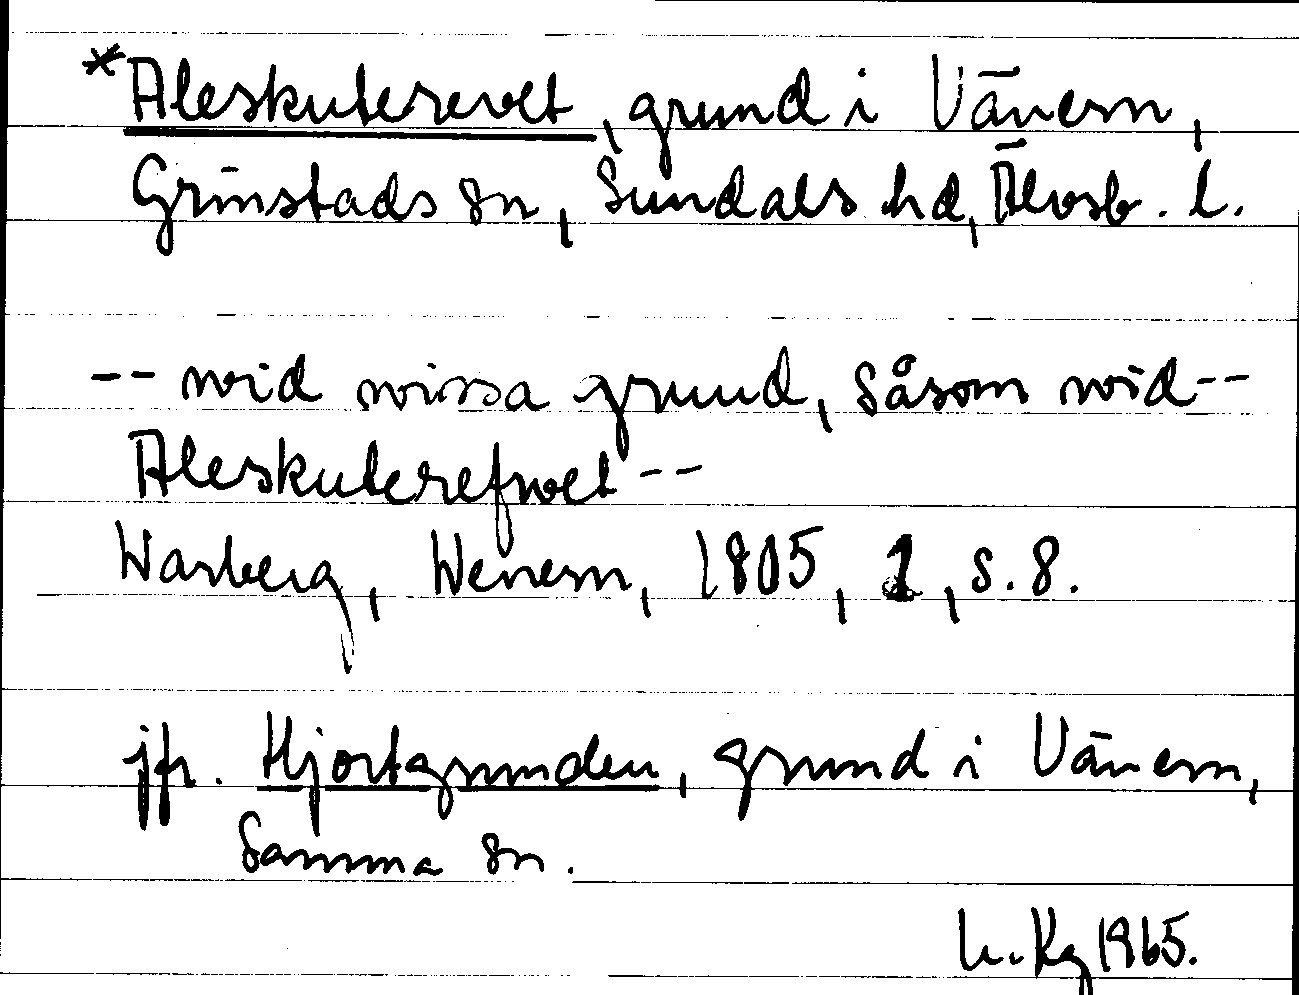 *Aleskuterevet, grund i Vänern,
Grinstads sn, Sundals hd, Älvsb. l.
-- wid wissa grund, såsom wid --
Aleskuterefwet --
Warberg, Wenern, 1805, 1, s. 8.
jfr. Hjortgrunden, grund i Vänern,
samma sn.
Kg 1965.